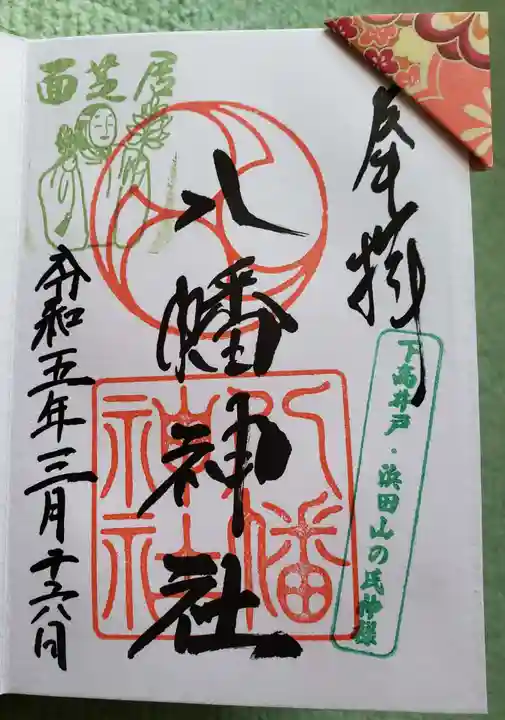 奉拝
下高井戸・浜田山の氏神様
八幡神社
八幡
神社
面芝居
令和五年三月十六日